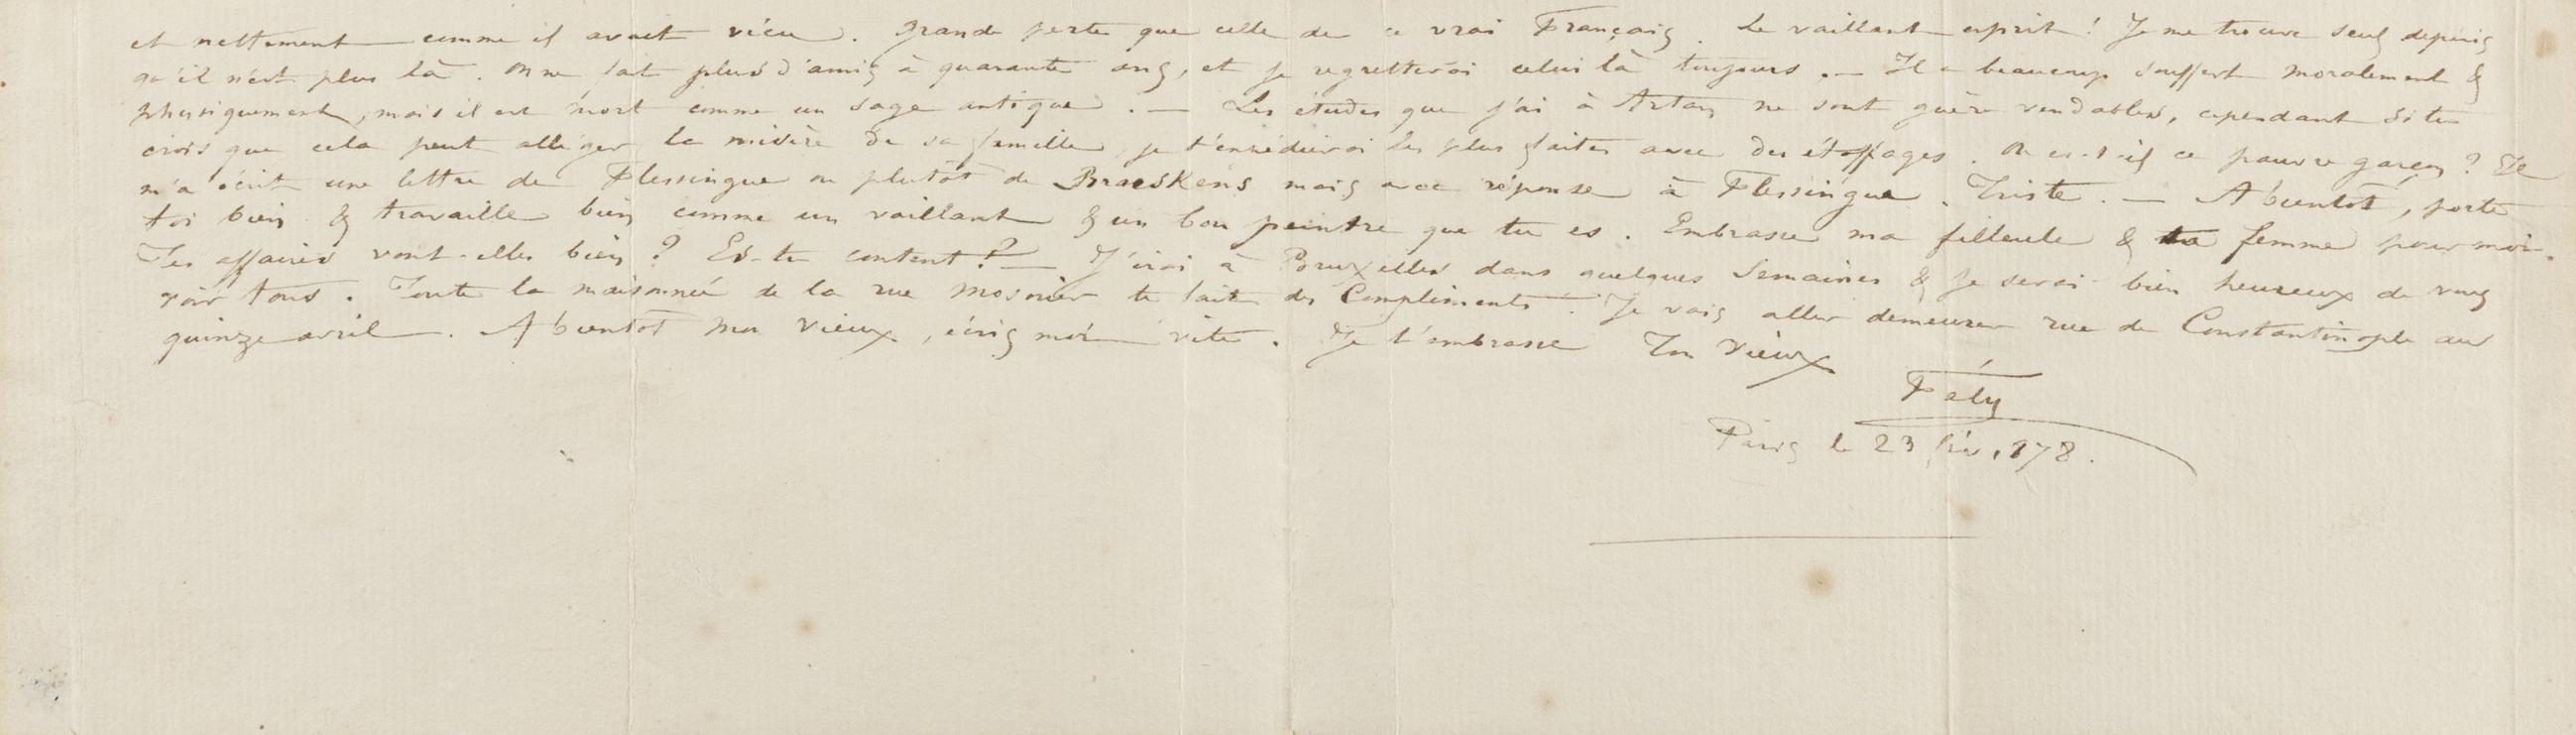 et nettement comme il avait vécu. Grande perte que celle de ce vrai Français. Le vaillant esprit! Je me trouve seul depuis
qu'il n'est plus là. On ne fait plus d'amis à quarante ans, et je regretterai celui là toujours. — Il a beaucoup souffert moralement &
physiquement, mais il est mort comme un sage antique. — Les études que j'ai à Artan ne sont guère vendables, cependant si tu
crois que cela peut alléger la misère de sa famille je t'enverrai les plus faites avec des étoffages. Où est-il ce pauvre garçon? Il
m'a écrit une lettre de Flessingue ou plutôt de Breskens mais avec réponse à Flessingue. Triste. — A bientôt, porte
toi bien & travaille bien comme un vaillant & un bon peintre que tu es. Embrasse ma filleule & ta femme pour moi.
Tes affaires vont-elles bien? Es-tu content? — J'irai à Bruxelles dans quelques semaines & je serai bien heureux de vous
voir tous. Toute la maisonnée de la rue Mosnier te fait des Compliments. Je vais aller demeurer rue de Constantinople au
quinze avril. A bientôt mon vieux, écris moi vite. Je t'embrasse Ton vieux
Fély
Paris le 23 fév. 878.